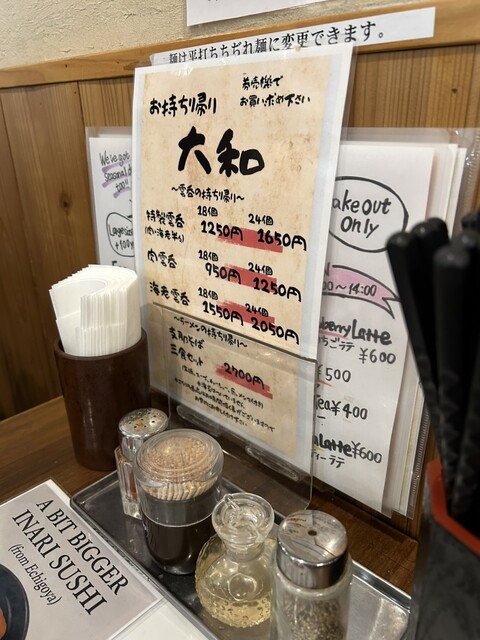 麺は平打ちちぢれ麺に変更できます。
お持ち帰り
券売機で
お買い求め下さい
大和
～雲呑の持ち帰り～
18個 24個
特製雲呑 1250円 1650円
(肉・海老半々)
18個 24個
肉雲呑 950円 1250円
18個 24個
海老雲呑 1550円 2050円
～ラーメンの持ち帰り～
三食セット 2700円
We've got
seasonal
too!!
Large size
+100
ake out
Only
00～14:00
berry Latte
ちごラテ ¥600
¥500
Tea ¥400
Latte ¥600
ィーラテ
A BIT BIGGER
INARI SUSHI
(from Echigoya)